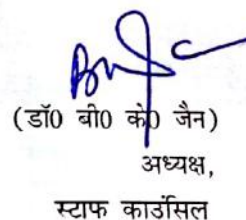 (डॉ0 बी0 के0 जैन)
अध्यक्ष,
स्टाफ काउंसिल